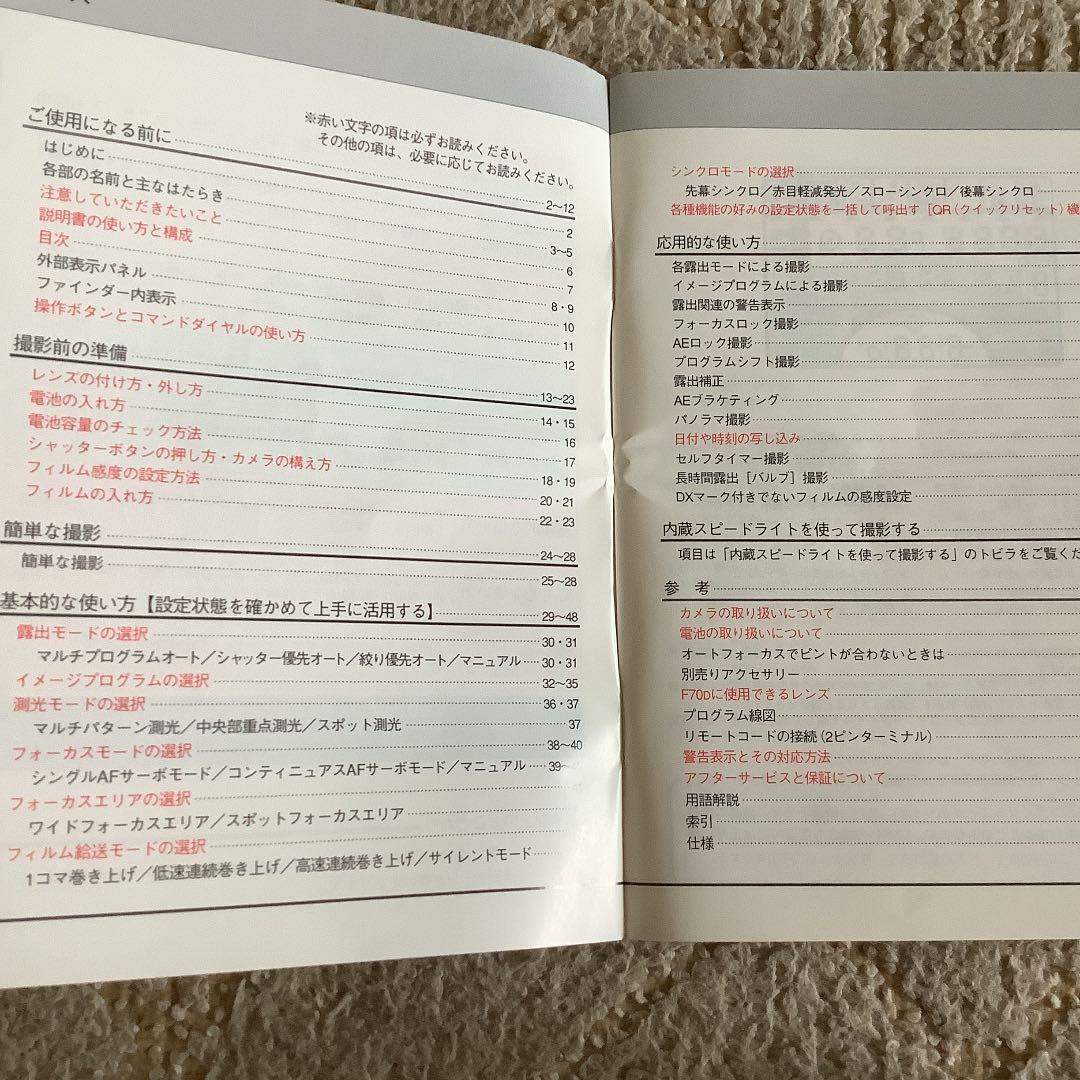 ※赤い文字の項は必ずお読みください。
その他の項は、必要に応じてお読みください。
ご使用になる前に 2〜12
はじめに 2
各部の名前と主なはたらき 3〜5
注意していただきたいこと 6
説明書の使い方と構成 7
目次 8・9
外部表示パネル 10
ファインダー内表示 11
操作ボタンとコマンドダイヤルの使い方 12
撮影前の準備 13〜23
レンズの付け方・外し方 14・15
電池の入れ方 16
電池容量のチェック方法 17
シャッターボタンの押し方・カメラの構え方 18・19
フィルム感度の設定方法 20・21
フィルムの入れ方 22・23
簡単な撮影 24〜28
簡単な撮影 25〜28
基本的な使い方【設定状態を確かめて上手に活用する】 29〜48
露出モードの選択 30・31
マルチプログラムオート／シャッター優先オート／絞り優先オート／マニュアル 30・31
イメージプログラムの選択 32〜35
測光モードの選択 36・37
マルチパターン測光／中央部重点測光／スポット測光 37
フォーカスモードの選択 38〜40
シングルAFサーボモード／コンティニュアスAFサーボモード／マニュアル 39〜
フォーカスエリアの選択
ワイドフォーカスエリア／スポットフォーカスエリア
フィルム給送モードの選択
1コマ巻き上げ／低速連続巻き上げ／高速連続巻き上げ／サイレントモード
シンクロモードの選択
先幕シンクロ／赤目軽減発光／スローシンクロ／後幕シンクロ
各種機能の好みの設定状態を一括して呼出す［QR（クイックリセット）機
応用的な使い方
各露出モードによる撮影
イメージプログラムによる撮影
露出関連の警告表示
フォーカスロック撮影
AEロック撮影
プログラムシフト撮影
露出補正
AEブラケティング
パノラマ撮影
日付や時刻の写し込み
セルフタイマー撮影
長時間露出［バルブ］撮影
DXマーク付きでないフィルムの感度設定
内蔵スピードライトを使って撮影する
項目は「内蔵スピードライトを使って撮影する」のトビラをご覧くだ
参 考
カメラの取り扱いについて
電池の取り扱いについて
オートフォーカスでピントが合わないときは
別売りアクセサリー
F70Dに使用できるレンズ
プログラム線図
リモートコードの接続（2ピンターミナル）
警告表示とその対応方法
アフターサービスと保証について
用語解説
索引
仕様